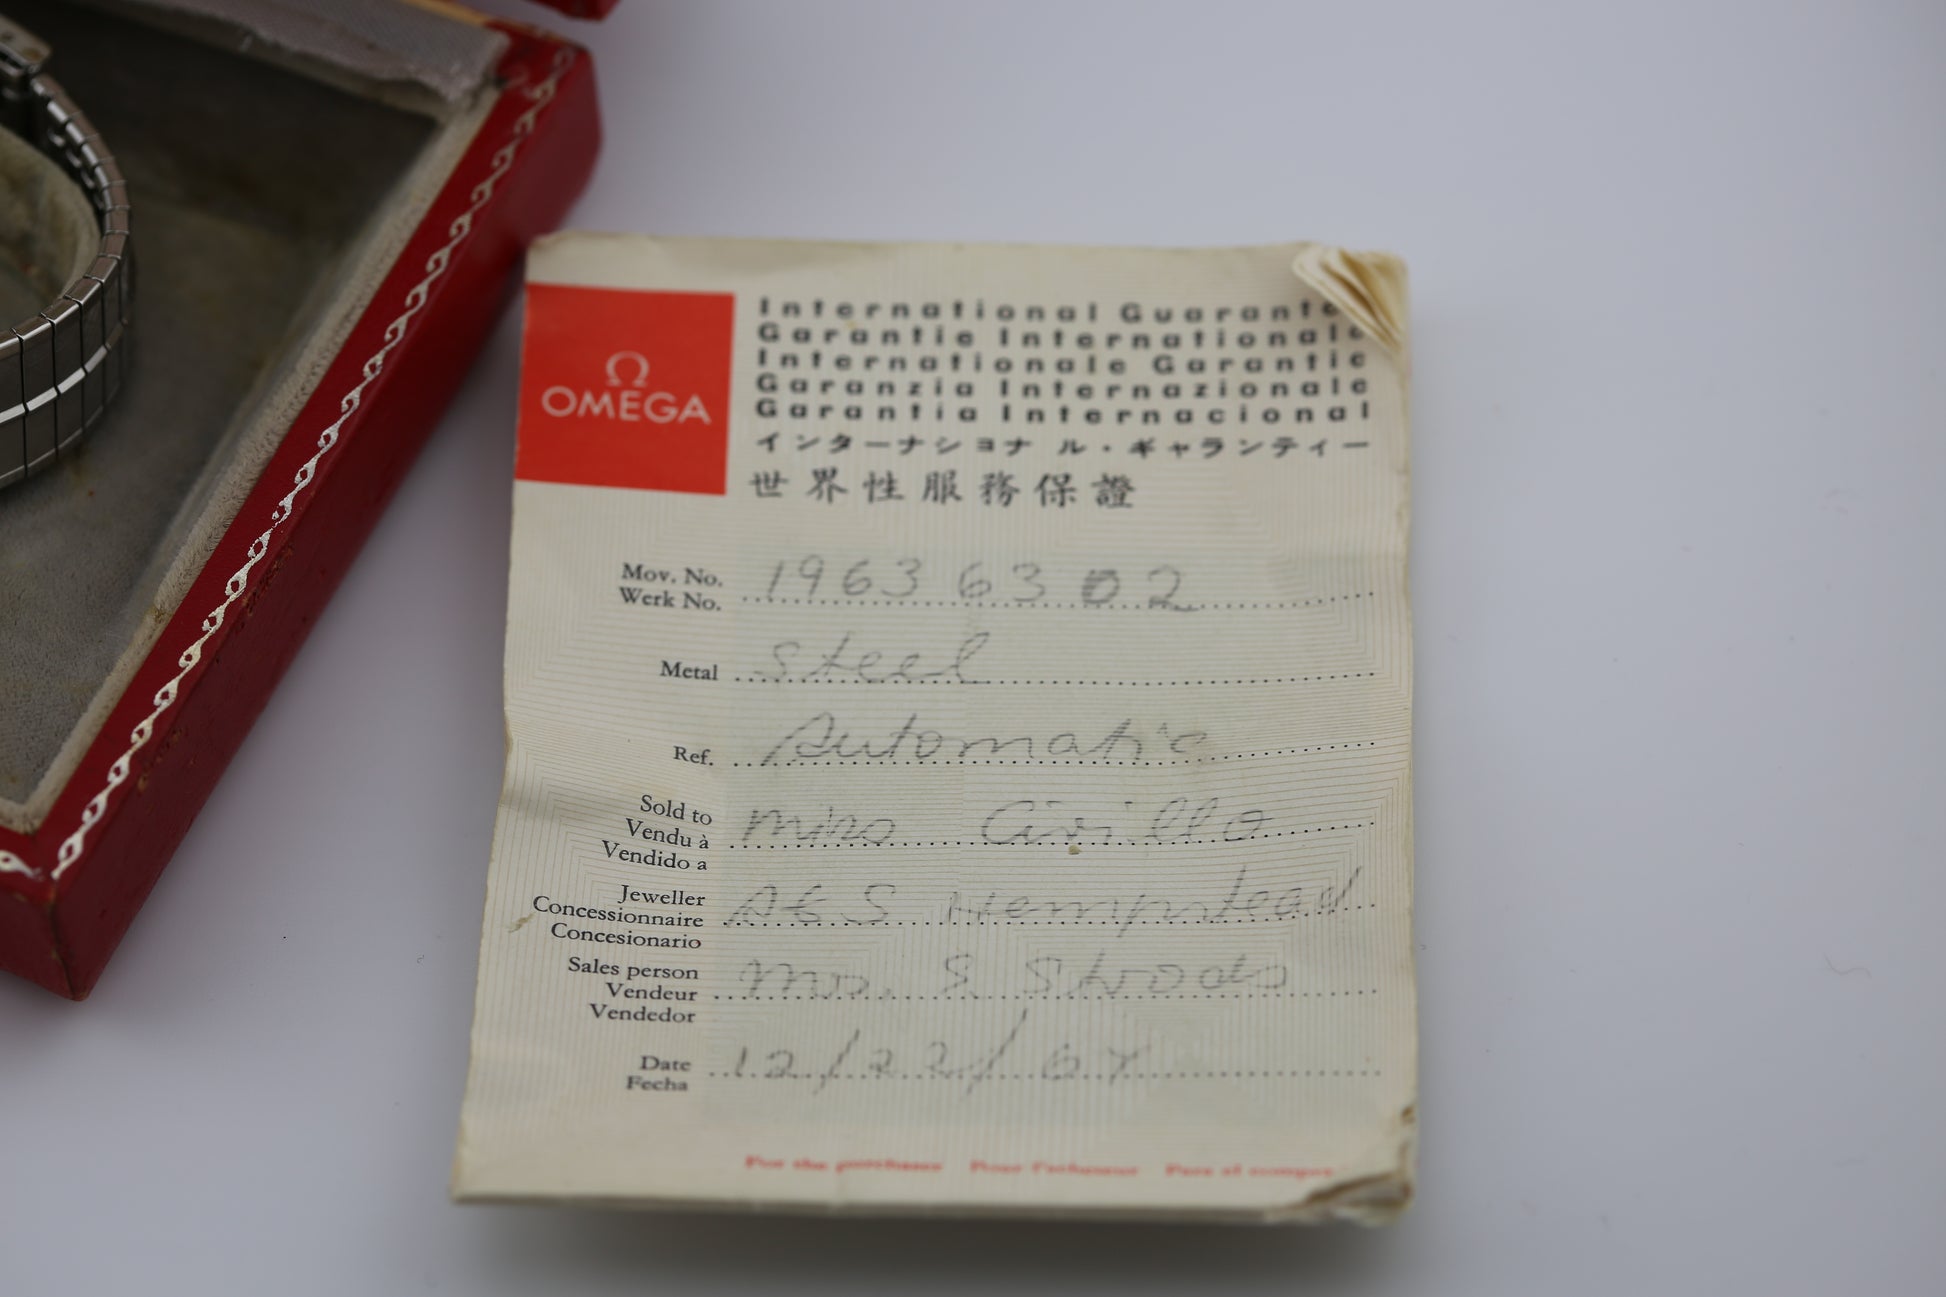 Ω
OMEGA
International Guarante
Garantie Internationale
Internationale Garantie
Garanzia Internazionale
Garantia Internacional
インターナショナル・ギャランティー
世界性服務保證
Mov. No. 19636302
Werk No.
Metal Steel
Ref. Automatic
Sold to
Vendu à Cirillo
Vendido a
Jeweller
Concessionnaire A&S Hempstead
Concesionario
Sales person
Vendeur S
Vendedor
Date 12/22/67
Fecha
For the purchaser Pour l'acheteur Para el compra